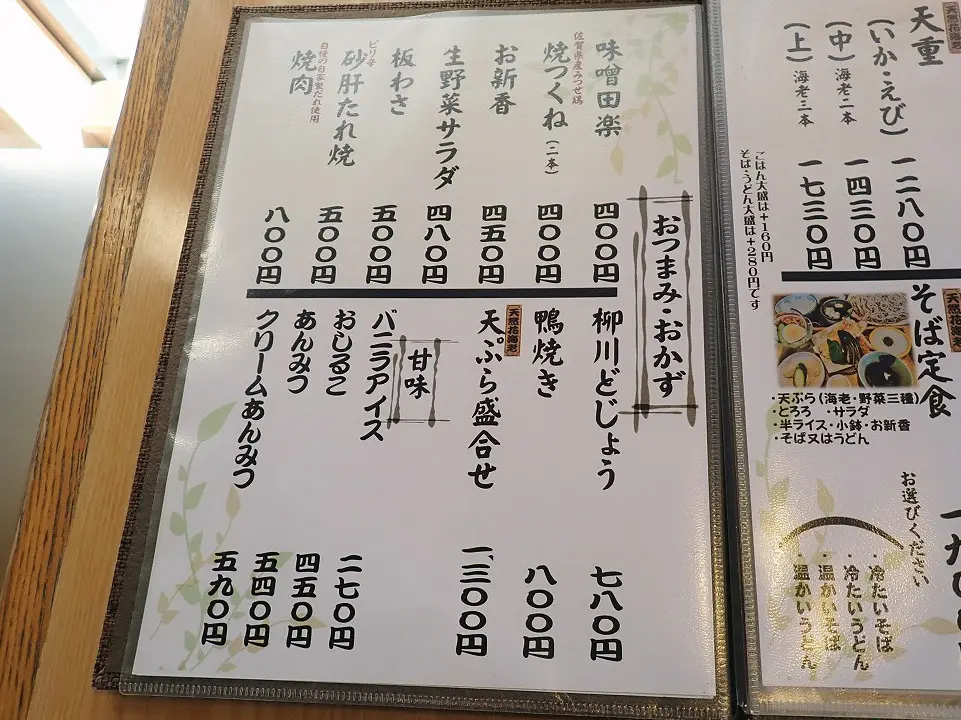 天然花海老
天重
(いか・えび) 一二八〇円
(中) 海老二本 一四三〇円
(上) 海老三本 一七三〇円
ごはん大盛は+160円
そば・うどん大盛は+280円です
天然花海老
そば定食
・天ぷら(海老・野菜三種)
・とろろ ・サラダ
・半ライス・小鉢・お新香
・そば又はうどん
お選びください
・冷たいそば
・冷たいうどん
・温かいそば
・温かいうどん
おつまみ・おかず
味噌田楽 四〇〇円
佐賀県産みつせ鶏
焼つくね(二本) 四〇〇円
お新香 四五〇円
生野菜サラダ 四八〇円
板わさ 五〇〇円
ピリ辛
砂肝たれ焼 五〇〇円
自慢の自家製だれ使用
焼肉 八〇〇円
柳川どじょう 七八〇円
鴨焼き 八〇〇円
天然花海老
天ぷら盛合せ 一、三〇〇円
甘味
バニラアイス 二七〇円
おしるこ 四五〇円
あんみつ 五四〇円
クリームあんみつ 五九〇円